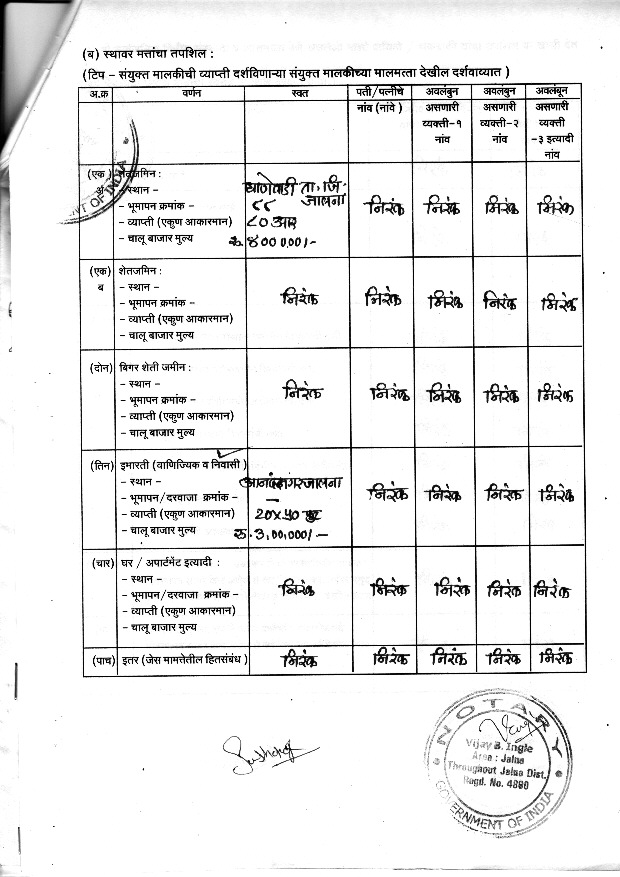 (ब) स्थावर मत्तांचा तपशिल :
(टिप – संयुक्त मालकीची व्याप्ती दर्शविणाऱ्या संयुक्त मालकीच्या मालमत्ता देखील दर्शवाव्यात )
अ.क्र वर्णन स्वत पती/पत्नीचे नांव (नांवे ) अवलंबुन असणारी व्यक्ती-१ नांव अवलंबुन असणारी व्यक्ती-२ नांव अवलंबून असणारी व्यक्ती -३ इत्यादी नांव
(एक) शेतजमिन :
– स्थान – घाणेवाडी ता. जि. जालना
– भूमापन क्रमांक – ८८ निरंक निरंक निरंक निरंक
– व्याप्ती (एकुण आकारमान) ८० आर
– चालू बाजार मुल्य रु. ४00000/-
(एक) शेतजमिन :
ब – स्थान –
– भूमापन क्रमांक – निरंक निरंक निरंक निरंक निरंक
– व्याप्ती (एकुण आकारमान)
– चालू बाजार मुल्य
(दोन) बिगर शेती जमीन :
– स्थान –
– भूमापन क्रमांक – निरंक निरंक निरंक निरंक निरंक
– व्याप्ती (एकुण आकारमान)
– चालू बाजार मुल्य
(तिन) इमारती (वाणिज्यिक व निवासी )
– स्थान – जालना
– भूमापन/दरवाजा क्रमांक – – निरंक निरंक निरंक निरंक
– व्याप्ती (एकुण आकारमान)
– चालू बाजार मुल्य रु. 3,00,000/-
(चार) घर / अपार्टमेंट इत्यादी :
– स्थान –
– भूमापन/दरवाजा क्रमांक – निरंक निरंक निरंक निरंक निरंक
– व्याप्ती (एकुण आकारमान)
– चालू बाजार मुल्य
(पाच) इतर (जेस मामत्तेतील हितसंबंध ) निरंक निरंक निरंक निरंक निरंक
NOTARY
Vijay B. Ingle
Area : Jalna
Throughout Jalna Dist.
Regd. No. 4890
GOVERNMENT OF INDIA